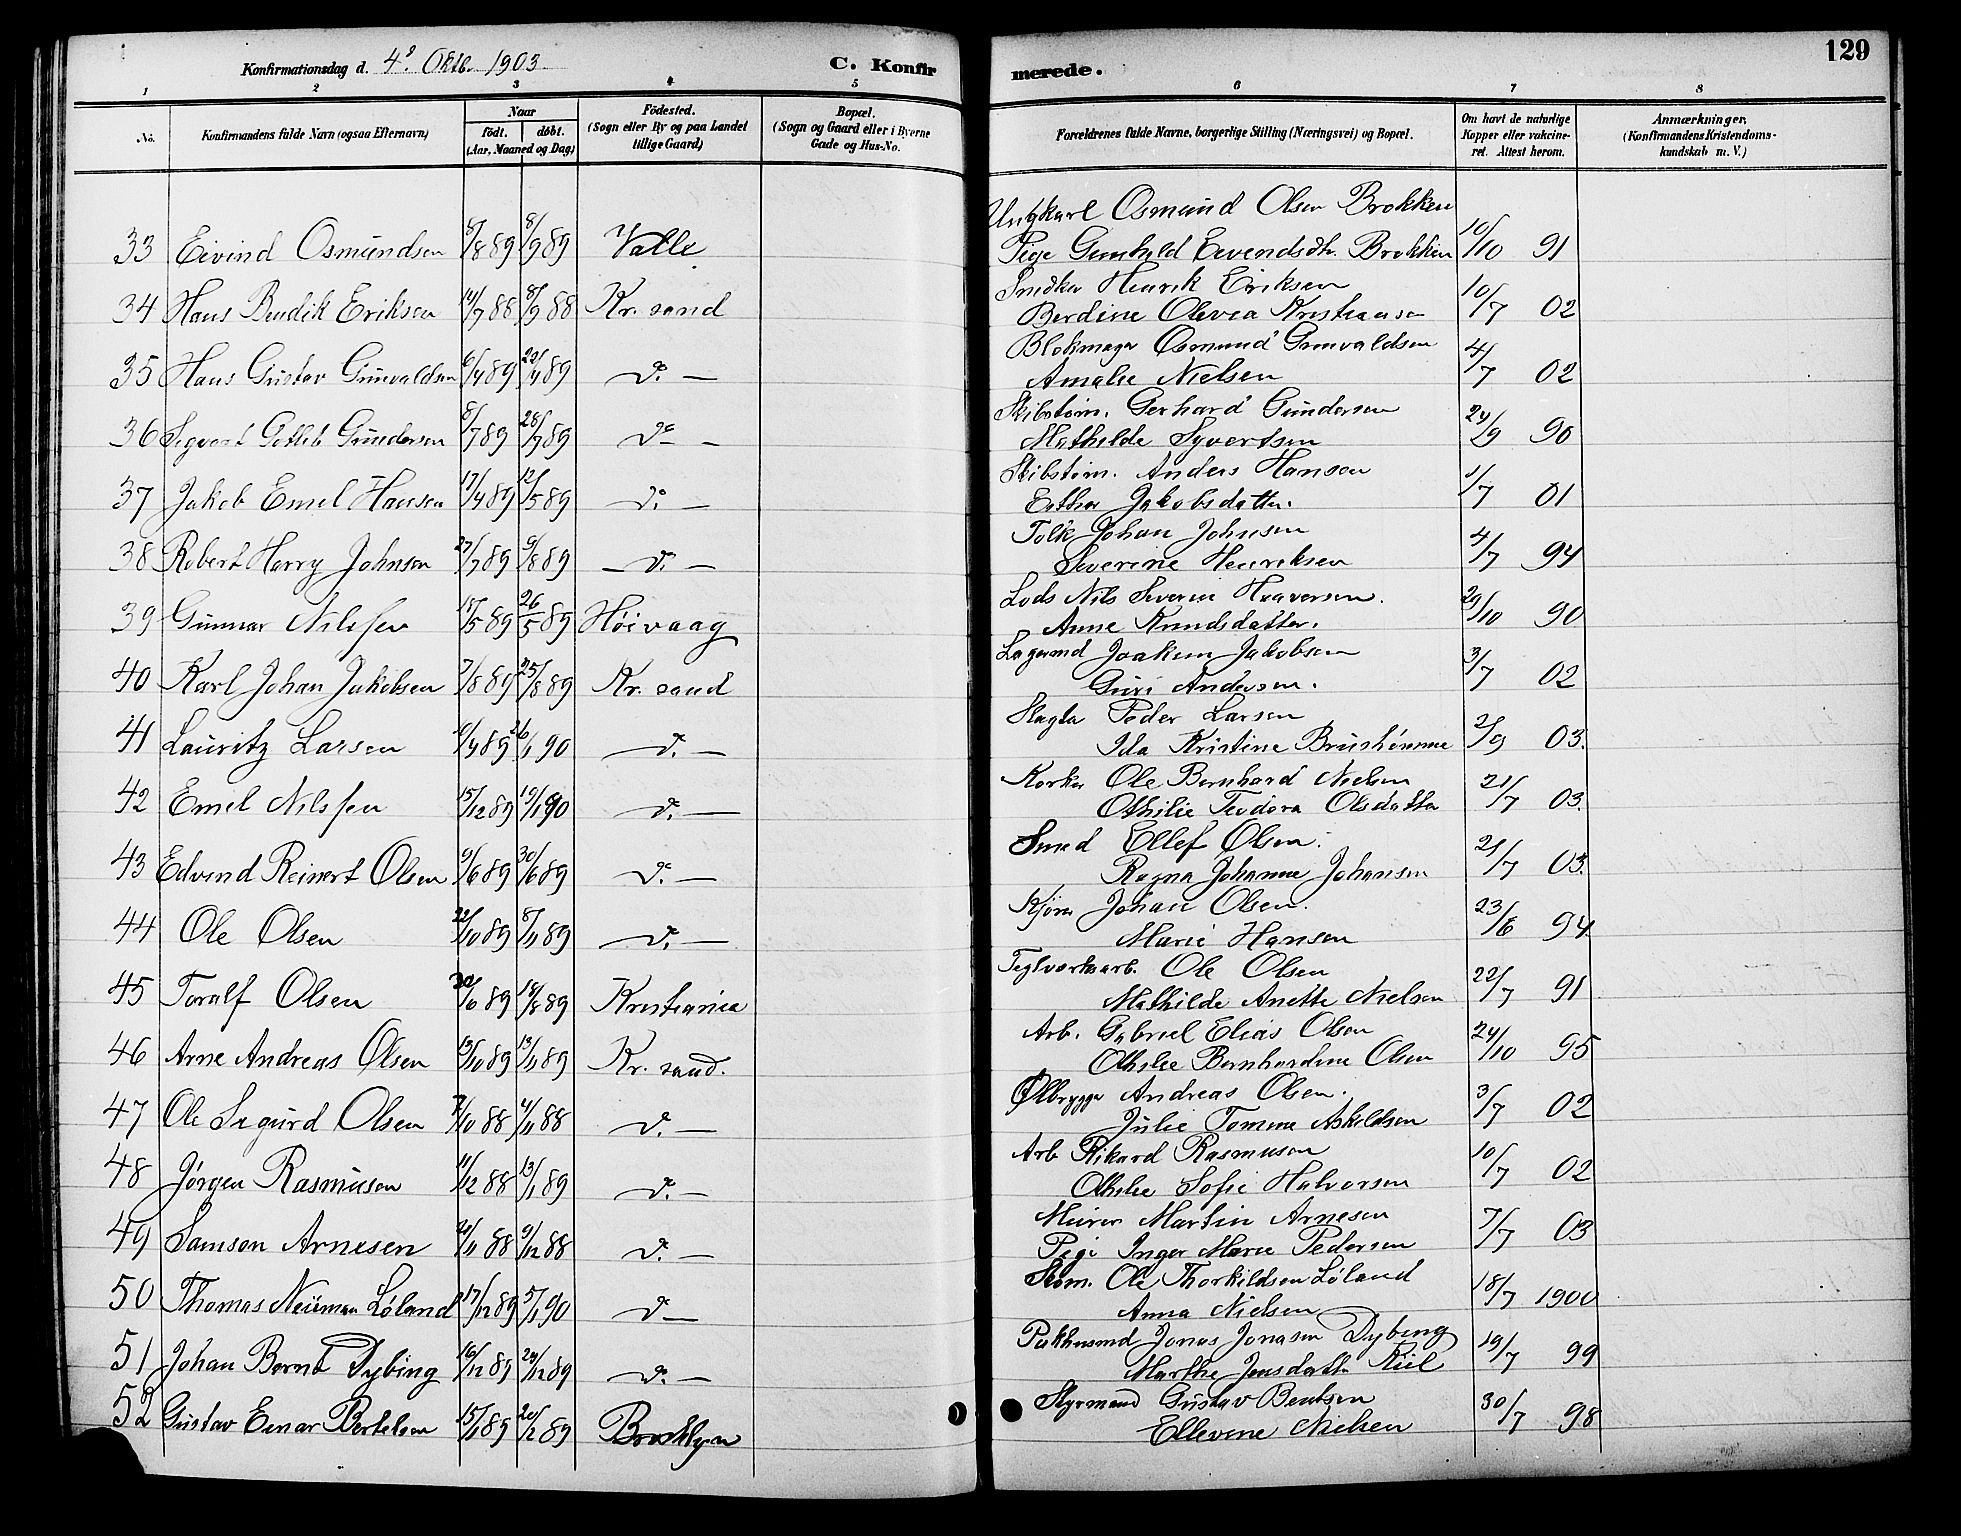 Konfirmationsdag d. 4de Oktb. 1903
C. Konfirmerede.
129
1 2 3 4 5 6 7 8
No.
Konfirmandens fulde Navn (ogsaa Efternavn)
Naar
födt. döbt.
(Aar, Maaned og Dag)
Födested.
(Sogn eller By og paa Landet
tillige Gaard)
Bopæl.
(Sogn og Gaard eller i Byerne
Gade og Hus-No.
Forældrenes fulde Navne, borgerlige Stilling (Næringsvei) og Bopæl.
Om havt de naturlige
Kopper eller vakcine-
ret. Attest herom.
Anmærkninger.
(Konfirmandens Kristendoms-
kundskab m. V.)
Ungkarl Osmund Olsen Brokken
33 Eivind Osmundsen 5/8 89 8/9 89 Valle Pige Gunhild Eivendsdtr. Brokken 10/10 91
Snedker Henrik Eriksen
34 Hans Bendik Eriksen 14/7 88 8/9 88 Kr. sand Berdine Olevia Kristiansen 10/7 02
Blokmager Osmund Gunvaldsen
35 Hans Gustav Gunvaldsen 6/4 89 22/4 89 do — Amalie Nielsen 4/7 02
Skibstøm. Gerhard Gundersen
36 Sigvart Gotlib Gundersen 8/7 89 28/7 89 do — Mathilde Syvertsen 24/9 90
Skibstøm. Anders Hansen
37 Jakob Emel Hansen 17/4 89 12/5 89 do — Esther Jakobsdatter. 1/7 01
Tolk Johan Johnsen
38 Robert Harry Johnsen 27/7 89 9/8 89 — do — Severine Henriksen 4/7 94
Lods Nils Severin Haaversen.
39 Gunnar Nilssen 15/5 89 26/5 89 Höivaag Anne Knudsdatter. 29/10 90
Lagermd Joakim Jakobsen
40 Karl Johan Jakobsen 7/8 89 25/8 89 Kr. sand Guri Andersen. 3/7 02
Slagter Peder Larsen
41 Lauritz Larsen 6/4 89 26/1 90 do — Ida Kristine Brushémme 2/9 03.
Korker Ole Bernhard Nielsen
42 Emel Nilssen 15/12 89 19/1 90 do — Othilie Teodora Olsdatter 21/7 03.
Smed Ellef Olsen.
43 Edvind Reinert Olsen 9/6 89 30/6 89 do — Ragna Johanne Johansen 21/7 03.
Kjörer Johan Olsen.
44 Ole Olsen 22/10 89 8/11 89 do — Marie Hansen 23/6 94.
Teglværksarb. Ole Olsen
45 Toralf Olsen 89 18/8 89 Kristiania Mathilde Anette Nielsen 22/7 91
Arb. Gabriel Elias Olsen
46 Arne Andreas Olsen 13/10 89 13/11 89 Kr. sand. Othilie Bernhardine Olsen 24/10 95
Ølbrygger Andreas Olsen.
47 Ole Sigurd Olsen 7/10 88 4/11 88 do — Julie Tomine Askildsen 3/7 02
Arb Rikard Rasmusen
48 Jörgen Rasmusen 11/12 88 13/1 89 do — Othilie Sofie Halvorsen 10/7 02
Murer Martin Arnesen
49 Samson Arnesen 20/11 88 9/12 88 do — Pige Inger Marie Pedersen 7/7 03
Støm. Ole Thorkildsen Løland
50 Thomas Neuman Løland 17/12 89 5/1 90 do — Anna Nielsen 18/7 1900
Pakhusmd Jonas Jonasen Dybing
51 Johan Bernt Dybing 16/12 89 29/12 89 do — Marthe Jensdatter Riil 19/7 99
Styrmand Gustav Bentsen
52 Gustav Einar Bertelsen 15/1 89 20/2 89 Brooklyn Ellevine Nielsen 30/7 98